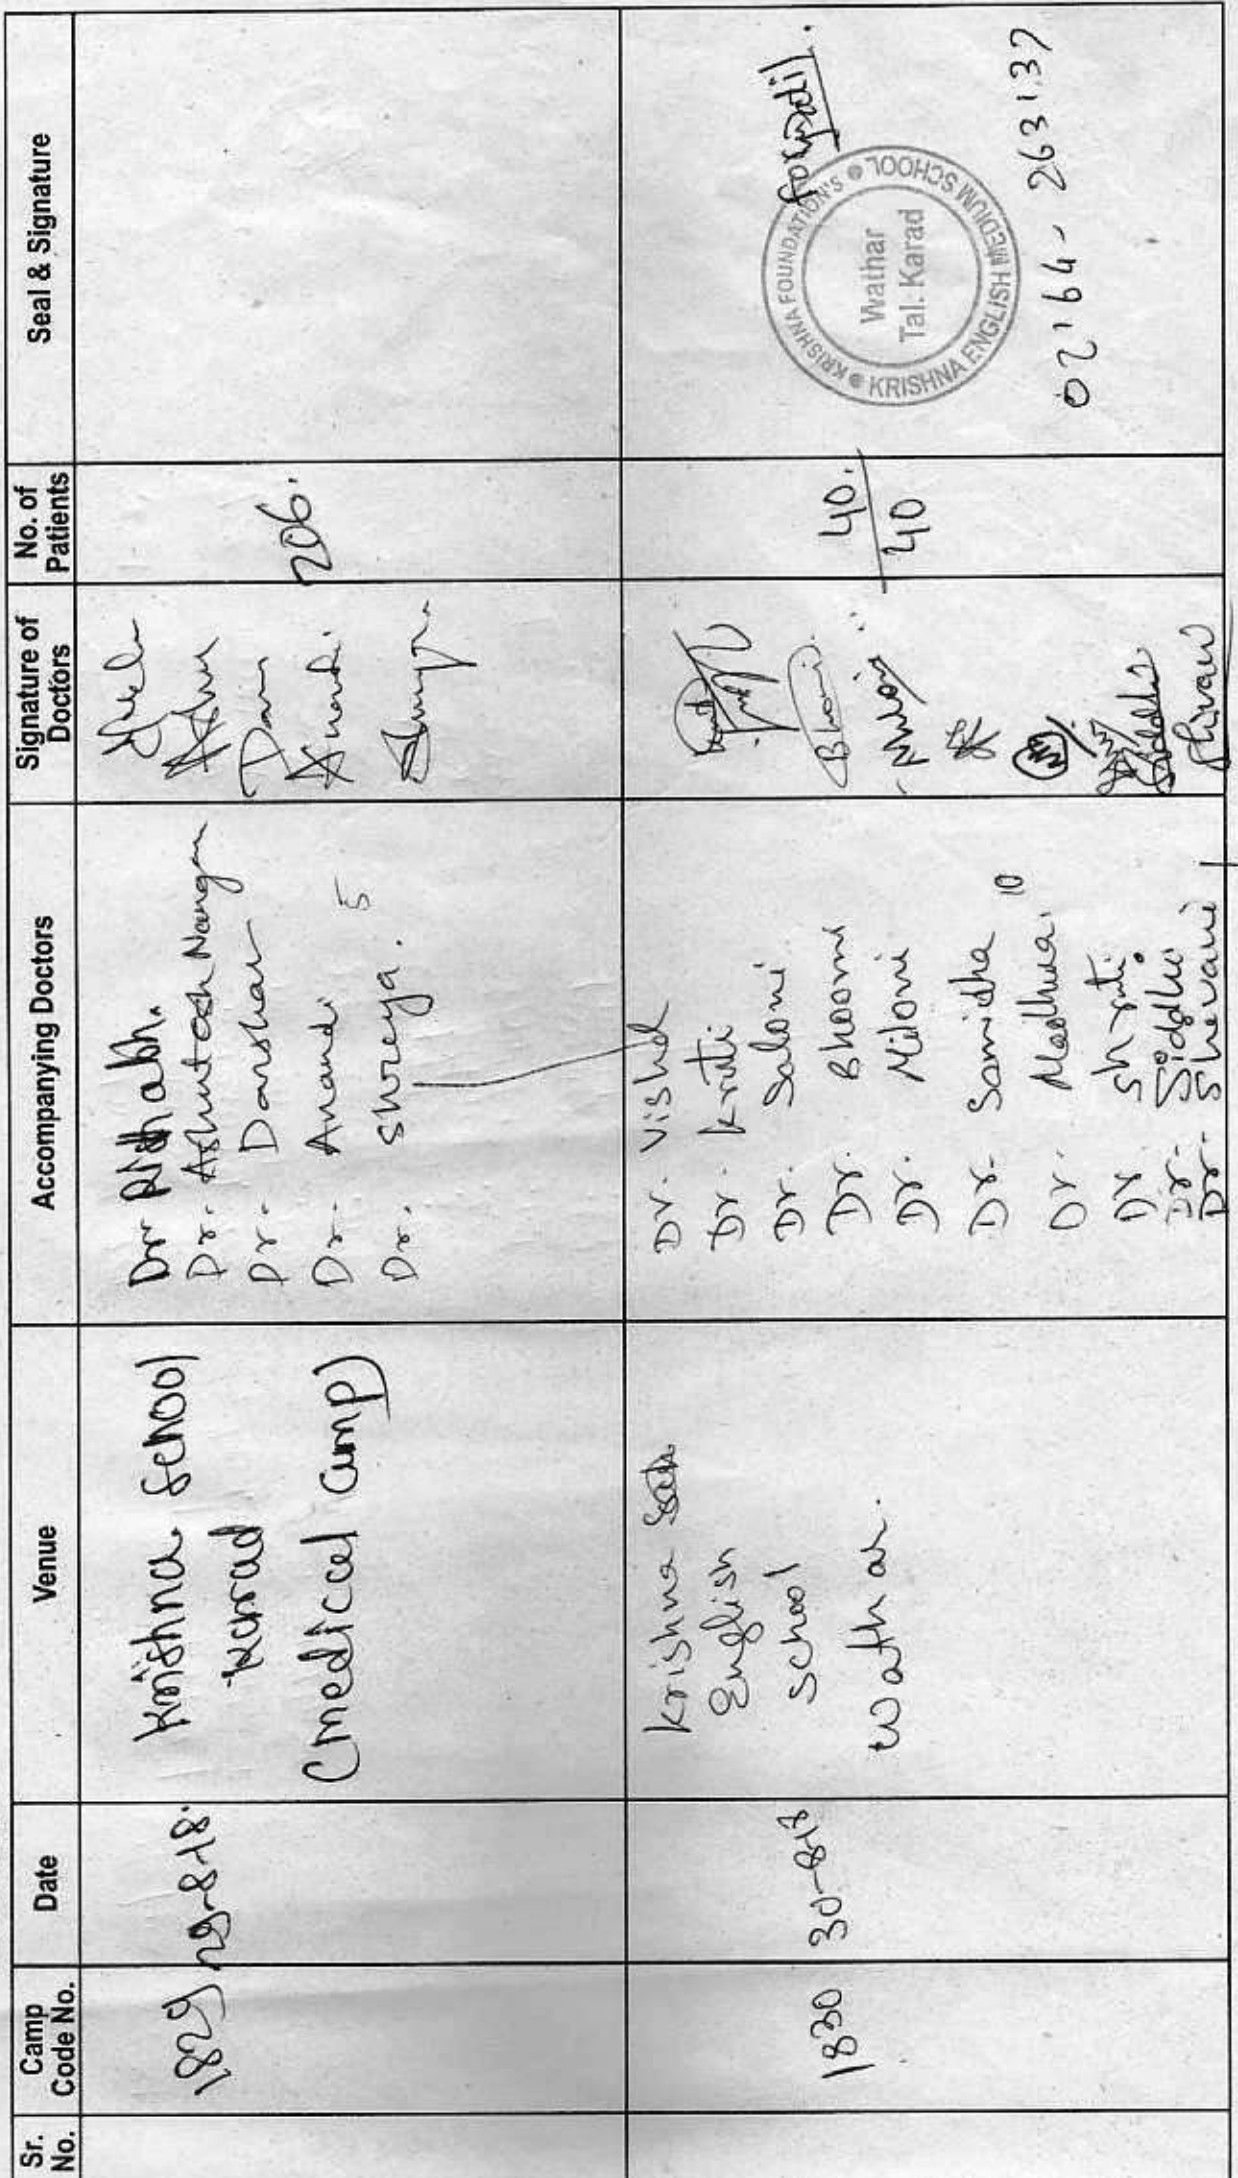 Sr. No.
Camp Code No.
Date
Venue
Accompanying Doctors
Signature of Doctors
No. of Patients
Seal & Signature
1829
29-8-18.
Krishna School
Karad
(medical camp)
Dr Rishabh.
Dr. Ashutosh Nangan
Dr. Darshan
Dr. Anandi
Dr. Shreya. 5
206.
1830
30-8-18
Krishna
English
School
Wathar.
Dr. Vishal
Dr. Kruti
Dr. Saloni
Dr. Bhoomi
Dr. Miloni
Dr. Samidha
Dr. Madhura. 10
Dr. Shruti
Dr. Siddhi
Dr. Shevani
Bhoomi
40.
40
KRISHNA FOUNDATION'S
KRISHNA ENGLISH MEDIUM SCHOOL
Wathar
Tal. Karad
02164-263137